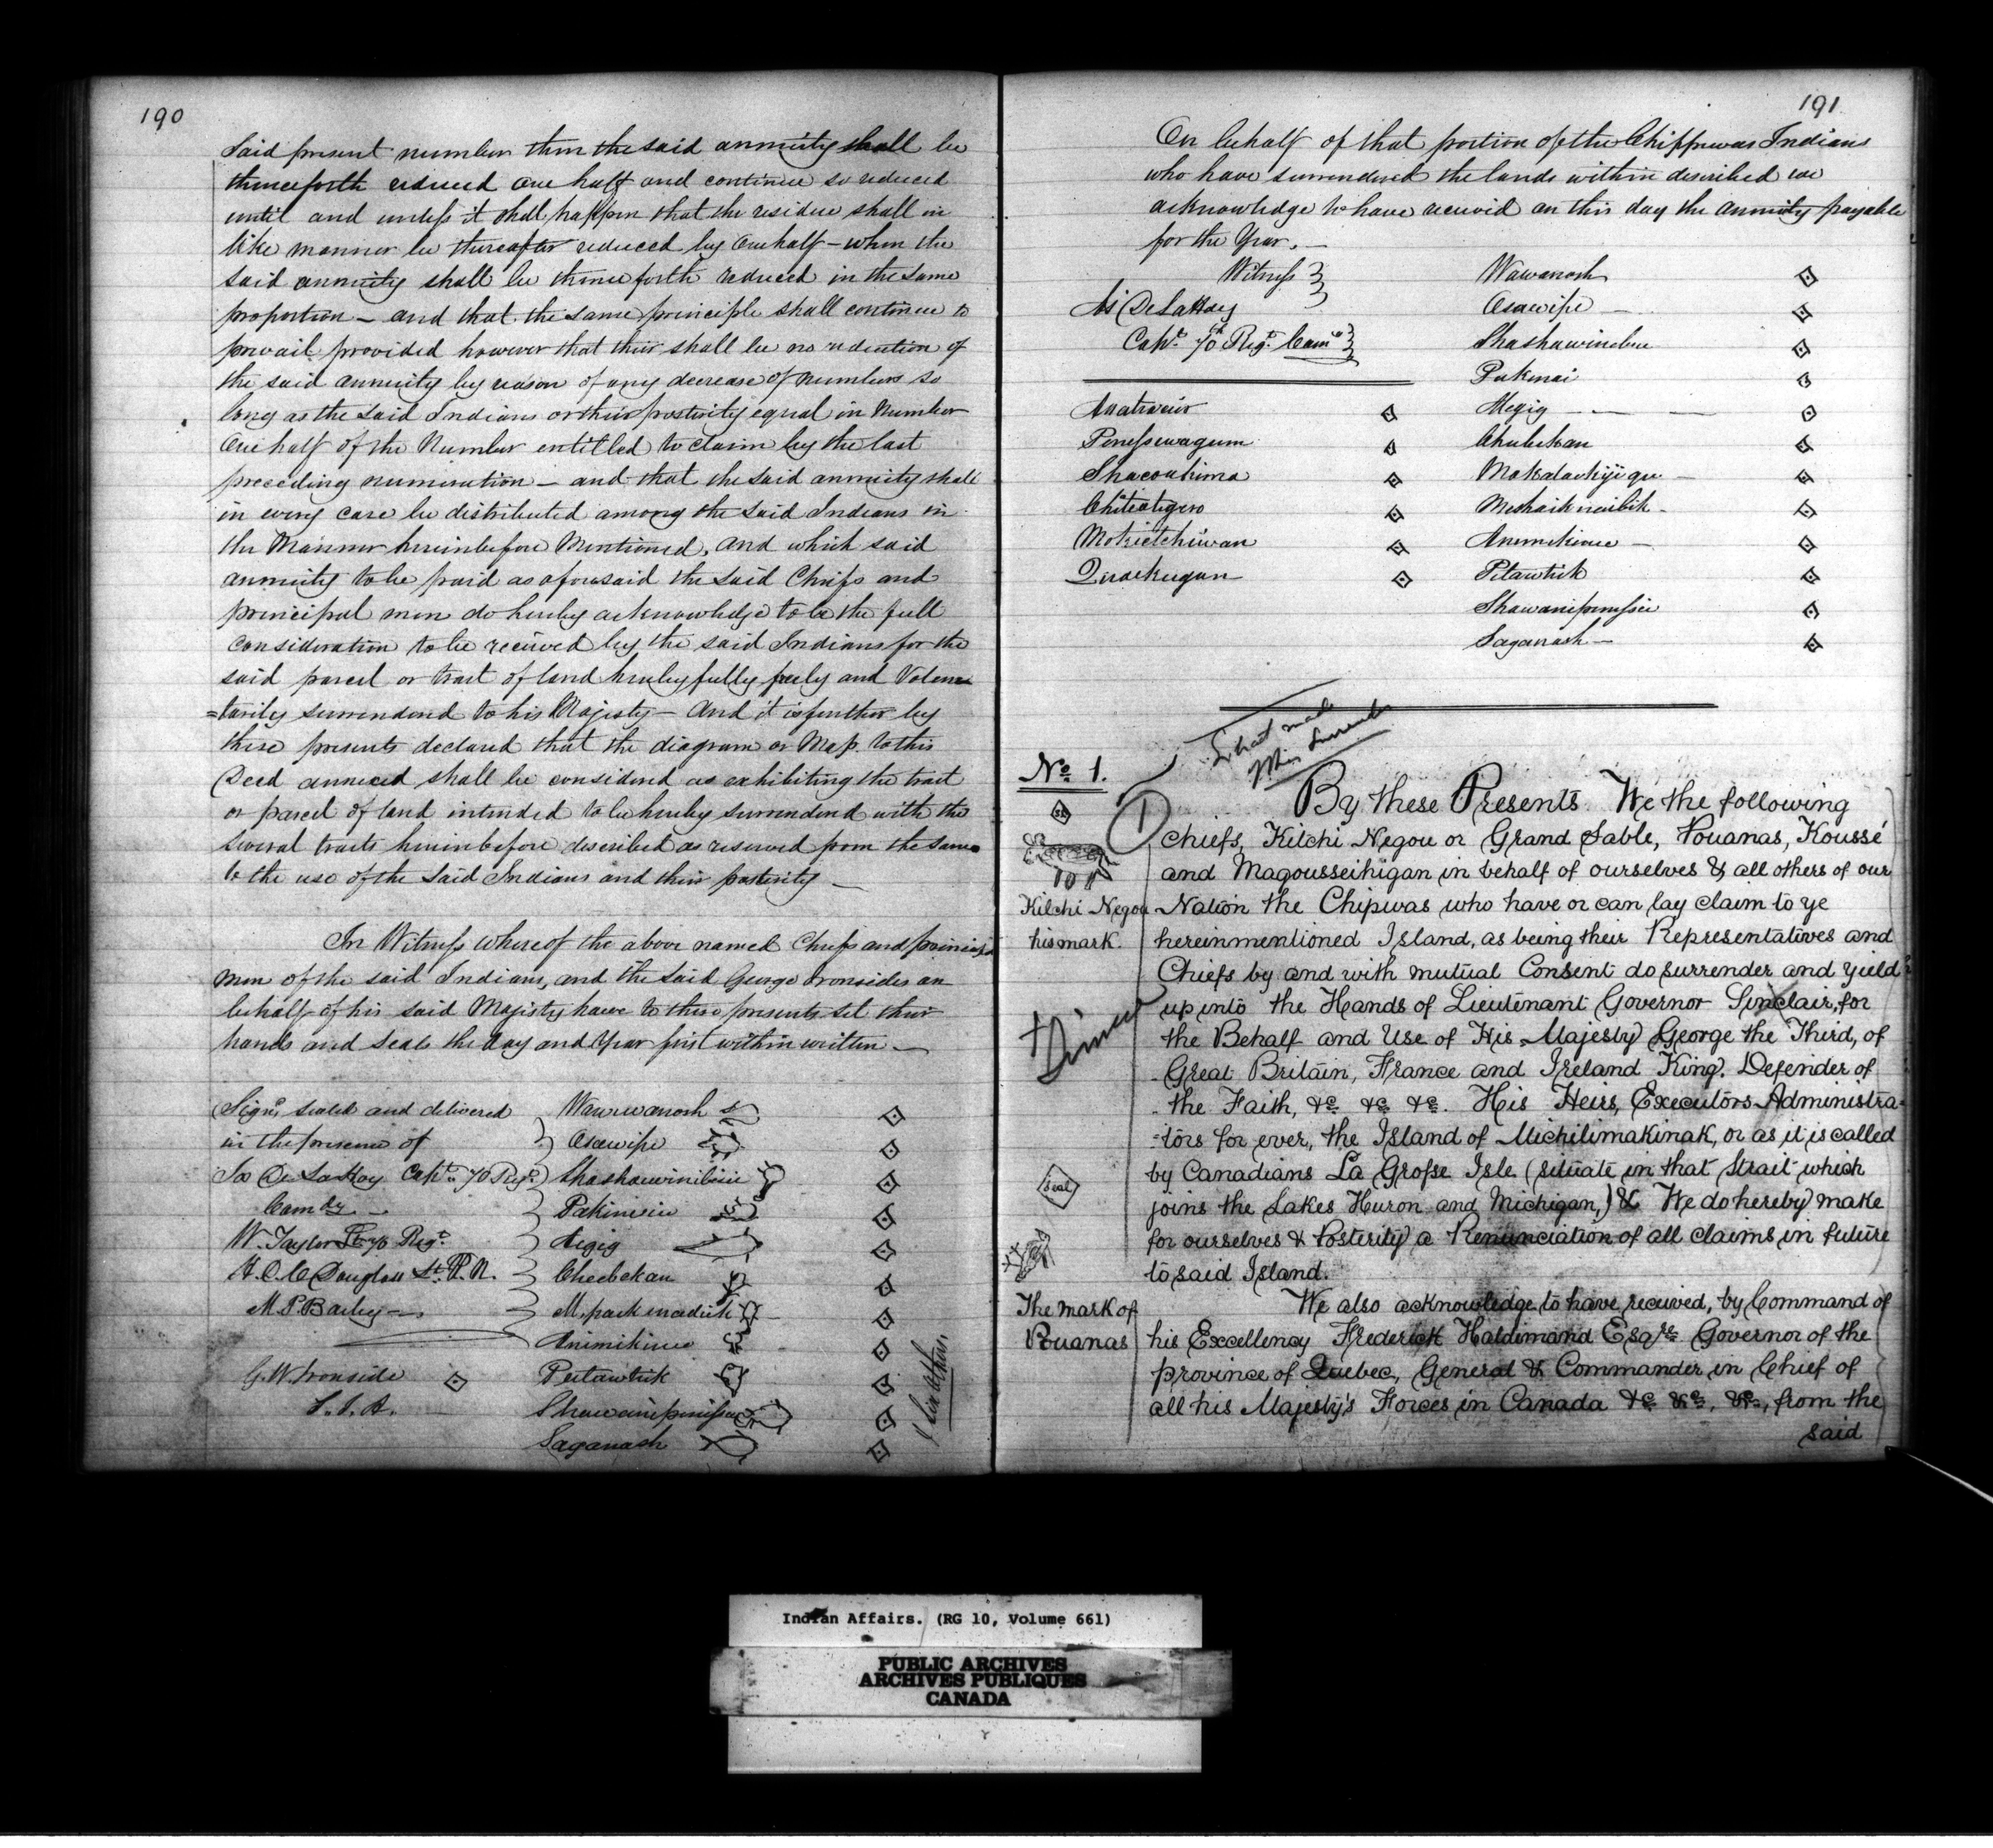 190
Said present number then the said annuity shall be
thenceforth reduced one half and continue so reduced
until and unless it shall happen that the residue shall in
like manner be thereafter reduced by one half – when the
said annuity shall be thenceforth reduced in the same
proportion – and that the same principle shall continue to
prevail provided however that their shall be no reduction of
the said annuity by reason of any decrease of numbers so
long as the said Indians or their posterity equal in Number
One half of the Number entitled to claim by the last
preceding numeration – and that the said annuity shall
in every case be distributed among the said Indians in
the Manner hereinbefore Mentioned, and which said
annuity to be paid as aforesaid the said Chiefs and
principal men do hereby acknowledge to be the full
consideration to be received by the said Indians for the
said parcel or tract of land hereby fully freely and Volun
=tarily surrendered to his Majesty – And it is further by
these presents declared that the diagram or Map to this
Deed annexed shall be considered as exhibiting the tract
or parcel of land intended to be hereby surrendered with the
several tracts hereinbefore described as reserved from the same
to the use of the said Indians and their posterity –
In Witness whereof the above named Chiefs and principal
men of the said Indians, and the said George Ironsides on
behalf of his said Majesty have to these presents set their
hands and seals the day and Year first within written –
Signd. sealed and delivered } Wauwanosh
in the presence of } Osawipe
Capt. 70 Regt. } Shashawinibisie
Comdg – } Pakinisie
W. Taylor Lt 70 Regt. } Aigig
Douglass } Cheebekan
M. P. Bailey –
Animikince
G. W. Ironside Petawtik
S. I. A.
Saganash
191
On behalf of that portion of the Chippewas Indians
who have surrendered the lands within described we
acknowledge to have received on this day the annuity payable
for the Year. –
Witness } Wawanosh
Osawipe –
Capt. 70th Regt. Shashawinebise
Pakinai
Megig – – –
Penessewagum Chebekan
Shacoahima
Animikince –
Petawtick
Saganash –
What made
this Surrender
No. 1.
1
By these Presents We the following
Chiefs, Kitchi Negou or Grand Sable, Pouanas, Koussé
and Magousseihigan in behalf of ourselves & all others of our
Kitchi Negou Nation the Chipwas who have or can lay claim to ye
his mark. hereinmentioned Island, as being their Representatives and
Chiefs by and with mutual Consent do surrender and yield
up into the Hands of Lieutenant Governor Sinclair, for
the Behalf and Use of His Majesty George the Third, of
Great Britain, France and Ireland King. Defender of
the Faith, &c. &c. &c. His Heirs, Executors Administra-
-tors for ever, the Island of Michilimakinak, or as it is called
by Canadians La Grosse Isle (situate in that Strait which
Seal
joins the Lakes Huron and Michigan,) & We do hereby make
for ourselves & Posterity a Renunciation of all claims in future
to said Island.
The mark of We also acknowledge to have received, by Command of
Pouanas his Excellency Frederick Haldimand Esqre. Governor of the
province of Quebec, General & Commander in Chief of
all his Majesty's Forces in Canada &c. &c., &c., from the
said
Indian Affairs. (RG 10, Volume 661)
PUBLIC ARCHIVES
ARCHIVES PUBLIQUES
CANADA